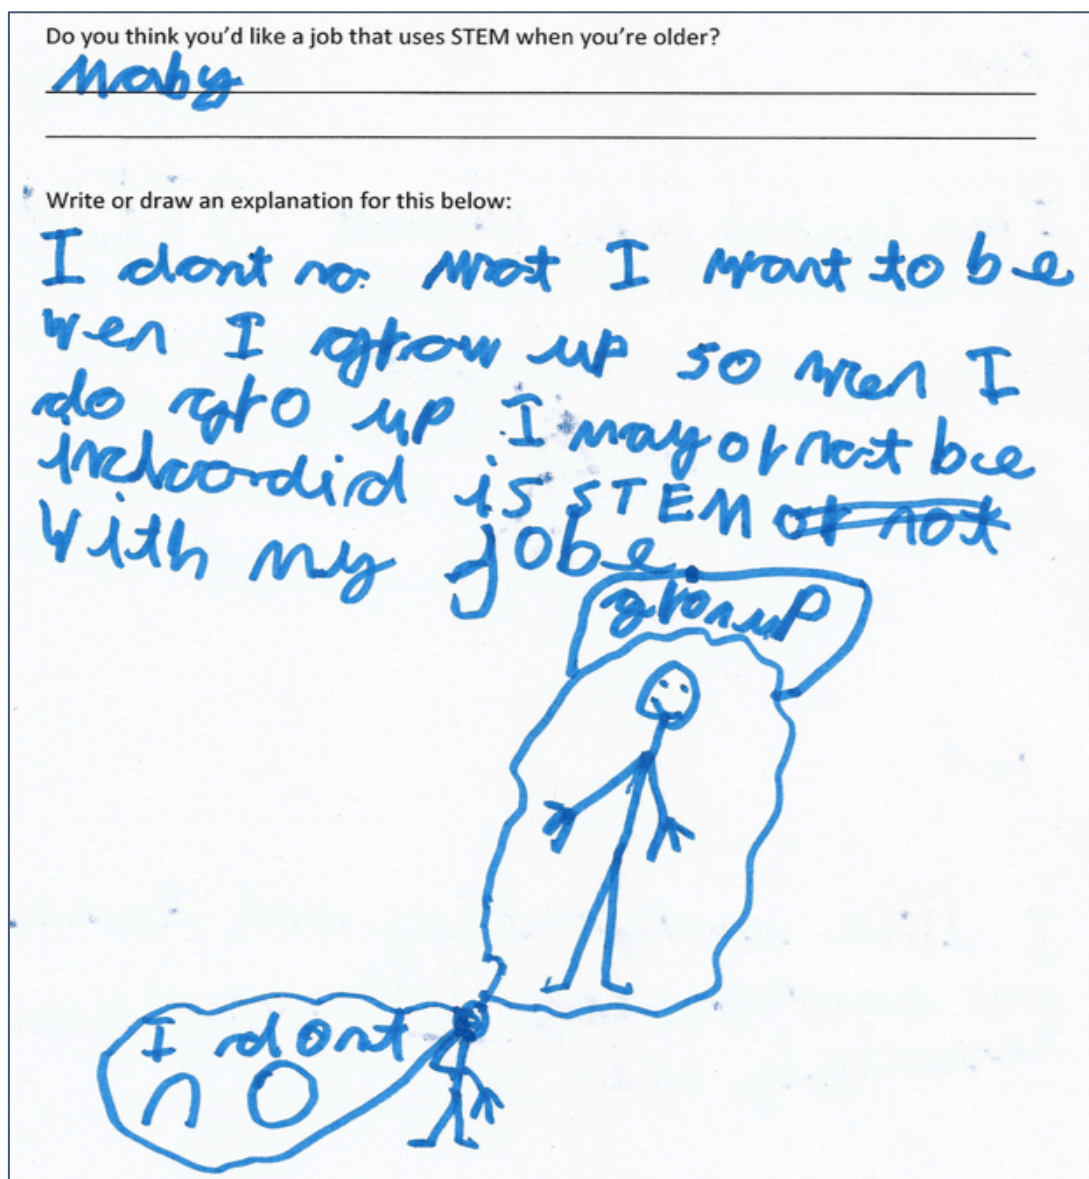 Do you think you'd like a job that uses STEM when you're older?
Maby
Write or draw an explanation for this below:
I dont no wat I want to be
wen I grow up so wen I
do gro up I may or not be
incloodid is STEM or not
with my jobe.
gronup
I dont
no